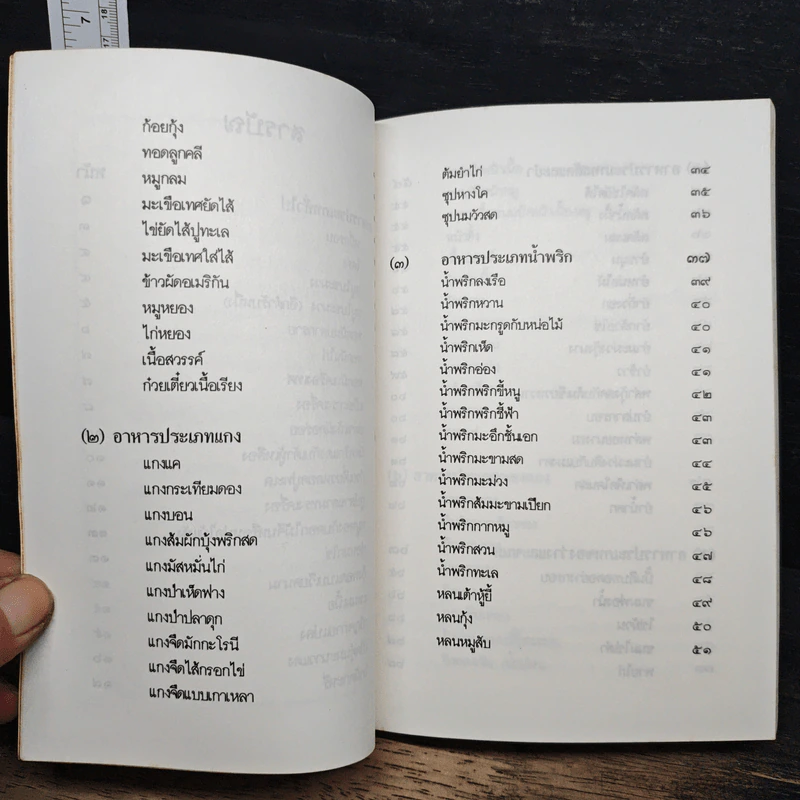 7
18
17
ก้อยกุ้ง
ทอดลูกคลี
หมูกลม
มะเขือเทศยัดไส้
ไข่ยัดไส้ปูทะเล
มะเขือเทศใส่ไส้
ข้าวผัดอเมริกัน
หมูหยอง
ไก่หยอง
เนื้อสวรรค์
ก๋วยเตี๋ยวเนื้อเรียง
(๒) อาหารประเภทแกง
แกงแค
แกงกระเทียมดอง
แกงบอน
แกงส้มผักบุ้งพริกสด
แกงมัสหมั่นไก่
แกงป่าเห็ดฟาง
แกงป่าปลาดุก
แกงจืดมักกะโรนี
แกงจืดไส้กรอกไข่
แกงจืดแบบเกาเหลา
ต้มยำไก่ ๓๔
ซุปหางโค ๓๕
ซุปนมวัวสด ๓๖
(๓) อาหารประเภทน้ำพริก ๓๗
น้ำพริกลงเรือ ๓๙
น้ำพริกหวาน ๔๐
น้ำพริกมะกรูดกับหน่อไม้ ๔๐
น้ำพริกเห็ด ๔๑
น้ำพริกอ่อง ๔๑
น้ำพริกพริกขี้หนู ๔๒
น้ำพริกพริกชี้ฟ้า ๔๓
น้ำพริกมะอึกชั้นเอก ๔๓
น้ำพริกมะขามสด ๔๔
น้ำพริกมะม่วง ๔๕
น้ำพริกส้มมะขามเปียก ๔๖
น้ำพริกกากหมู ๔๖
น้ำพริกสวน ๔๗
น้ำพริกทะเล ๔๘
หลนเต้าหู้ยี้ ๔๙
หลนกุ้ง ๕๐
หลนหมูสับ ๕๑